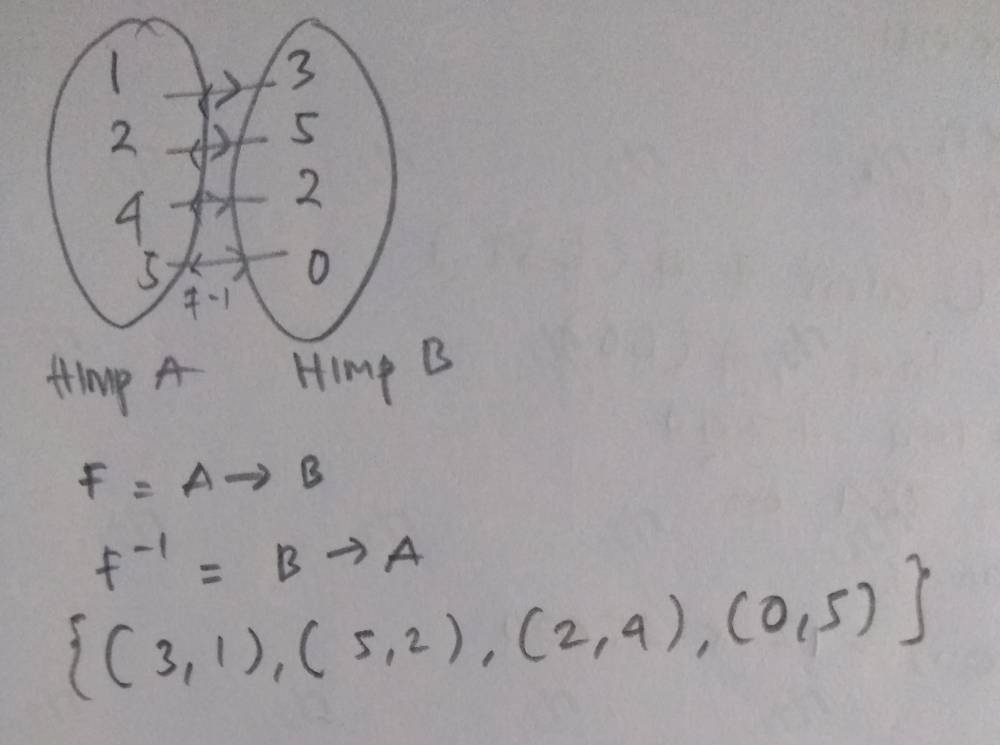 1 3
2 5
4 2
5 0
f-1
Himp A Himp B
F = A → B
f⁻¹ = B → A
{(3,1),(5,2),(2,4),(0,5)}